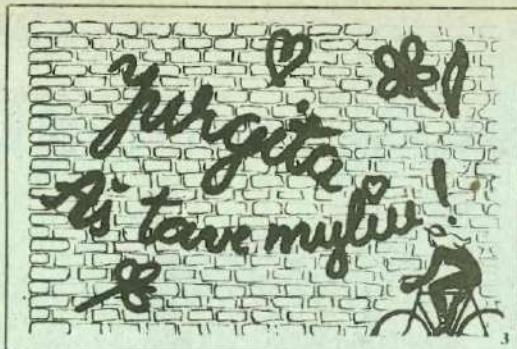 Jurgita
Aš tave myliu!
3